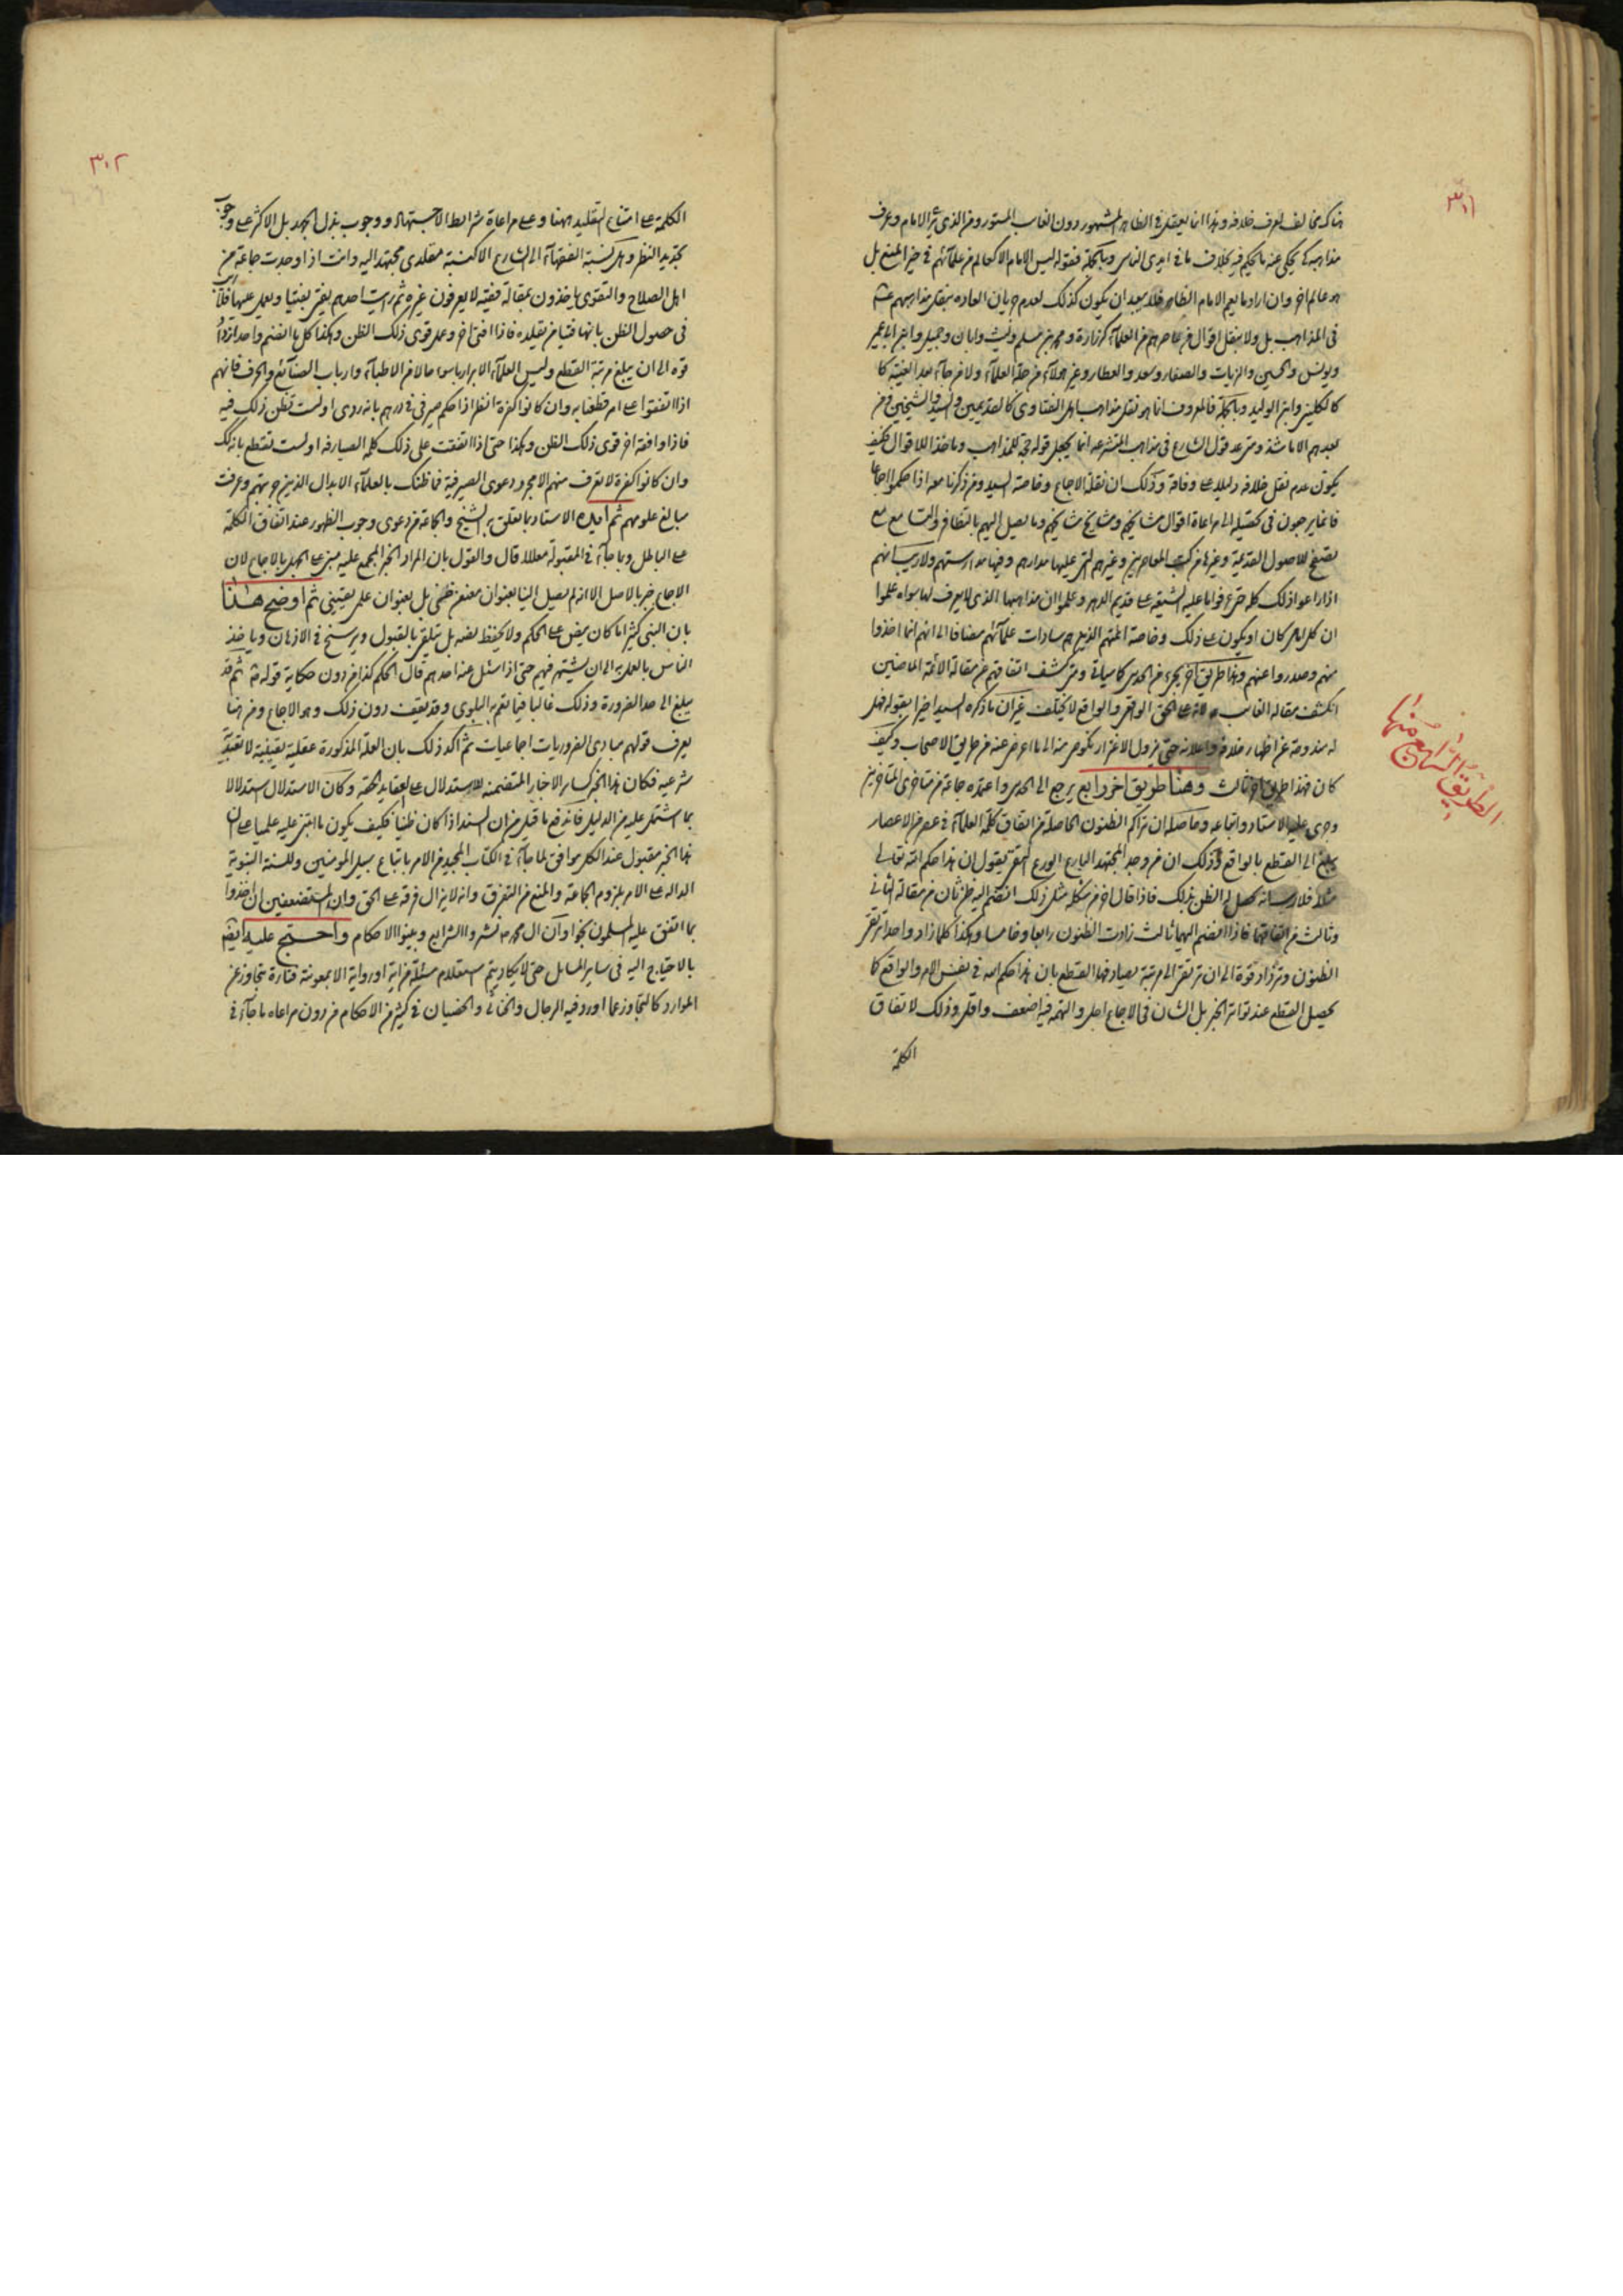 ٣٠١
هناك مخالف لعرف خلافه وهذا انما يعقل في الظاهر المشهور دون الغائب المستور ومن الذي يرى الامام ويعرف
مذاهبه كي يحكى عنه ما يحكم فيه بخلاف ما في ايدى الناس وبالجملة فقوله ليس الامام الا كعالم من علمآئهم في حيز المنع بل
هو عالم اخر وان اراد ما يعم الامام الظاهر فلا يبعد ان يكون كذلك لعدم جريان العاده بنقل مذاهبهم عثم
في المذاهب بل ولا بنقل اقوال من عاصرهم من العلمآء كزرارة ومحمد بن مسلم وليث وابان وجميل وابن ابى عمير
ويونس والحسين والزيات والصفار وسعد والعطار وغير هولآء من جلة العلمآء ولا من جآء بعد الغيبة كا
كالكليني وابن الوليد وبالجملة فالمعروف انما هو نقل مذاهب اهل الفتاوى كالقديمين والسيد والشيخين ومن
بعدهم الا ما شذ ومتى عد قول الشارع في مذاهب المتشرعه انما يجعل قوله حجة للمذاهب وماخذا للاقوال فكيف
يكون عدم نقل خلافه دليلا على وفاقه وكذلك ان نقلة الاجماع وخاصة السيد ومن ذكرنا معه اذا حكموا اجماعا
فانما يرجعون في تحصيله الى مراعاة اقوال مشايخهم ومشايخ مشايخهم وما يصل اليهم بالتظافر والتسامع مع
تصفح الاصول القديمة وغيرها من كتب المعاصرين وغيرهم التى عليها مدارهم وفيها مدارستهم ولا ريب انهم
اذا راعوا ذلك كله حتى عرفوا ما عليه الشيعه على قديم الدهر وعلموا ان مذاهبها الذى لا يعرف لها سواه علموا
ان كل امام كان او يكون على ذلك وخاصة ائمتهم الذين هم سادات علمآئهم مضافا الى انهم انما اخذوا
منهم وصدروا عنهم وهذا طريق اخر يجىء من الحدس كما سياتى ومتى كشف اتفاقهم عن مقالة الأئمة الماضين
انكشف مقاله الغائب لانه على الحق الواقعى والواقع لا يختلف غير ان ما ذكره السيد اخيرا بقوله فهل
له مندوحة عن اظهار خلافه واعلانه حتى يزول الاغترار نكوص منه الى ما اعرض عنه من طريق الاصحاب وكيف
كان فهذا طريق اخر ثالث وهنا طريق اخر رابع يرجع الى الحدس واعتمده جماعة من متاخرى المتاخرين
وجرى عليه الاستاد واتباعه وحاصله ان تراكم الظنون الحاصلة من اتفاق كلمة العلمآء في عصر من الاعصار
يبلغ الى القطع بالواقع وذلك ان من وجد المجتهد البارع الورع التقى يقول ان هذا حكم الله تعالى
مثلا فلا ريب انه يحصل له الظن بذلك فاذا قال اخر من شكله مثل ذلك انضم اليه ظن ثان من مقالة الثانى
وثالث من اتفاقهما فاذا انضم اليهما ثالث زادت الظنون رابعا وخامسا وهكذا كلما زاد واحد ترتقى
الظنون وتزداد قوة الى ان ترتقى الى مرتبة يصادفها القطع بان هذا حكم الله في نفس الامر والواقع كما
يحصل القطع عند تواتر الخبر بل الشان في الاجماع اجل والتهمة فيه اضعف واقل وذلك لاتفاق
الكلمة
الطريق الرابع منها
٣٠٢
الكلمة على امتناع التقليد ههنا وعلى مراعاة شرائط الاجتهاد ووجوب بذل الجهد بل الاكثر على وجوب
تجديد النظر وهل نسبة الفقهآء الى الشارع الا كنسبة مقلدى مجتهد اليه وانت اذا وجدت جماعة من
اهل الصلاح والتقوى ياخذون بمقالة فقيه لا يعرفون غيره ثم رايت احدهم يفتى بفتيا ويعمل عليها فلا ريب
في حصول الظن بانها فتيا من يقلده فاذا افتى اخر وعمل قوى ذلك الظن وهكذا كل ما انضم واحد ازداد
قوة الى ان يبلغ مرتبة القطع وليس العلمآء الابرار باسوا حالا من الاطبآء وارباب الصنآئع والحرف فانهم
اذا اتفقوا على امر قطعنا به وان كانوا كفرة انظر اذا حكم صيرفى في درهم بانه ردى اولست تظن ذلك فيه
فاذا وافقه اخر قوى ذلك الظن وهكذا حتى اذا اتفقت على ذلك كلمة الصيارفه اولست تقطع بذلك
وان كانوا كفرة لا تعرف منهم الا مجرد دعوى الصيرفية فما ظنك بالعلمآء الابدال الذين جربتهم وعرفت
مبالغ علومهم ثم ايده الاستاد بما تعلق به الشيخ والجماعة من دعوى وجوب الظهور عند اتفاق الكلمة
على الباطل وبما جآء في المقبولة معللا قال والقول بان المراد الخبر المجمع عليه مبنى على الجهل بالاجماع لان
الاجماع خبر بالاصل الا انه لم يصل الينا بعنوان معنعن ظنى بل بعنوان علمى يقينى ثم اوضح هذا
بان النبى كثيرا ما كان ينص على الحكم ولا يحفظ نصه بل يتلقى بالقبول ويرسخ في الاذهان وياخذ
الناس بالعمل به الى ان يشتهر فيهم حتى اذا سئل عنه احدهم قال الحكم كذا من دون حكاية قوله ثم قد
يبلغ الى حد الضرورة وذلك غالبا فيما تعم به البلوى وقد يقف دون ذلك وهو الاجماع ومن هنا
يعرف قولهم مبادى الضروريات اجماعيات ثم اكد ذلك بان العلة المذكورة عقلية يقينية لا تعبدية
شرعيه فكان هذا الخبر كساير الاخبار المتضمنه للاستدلال على العقايد الحقه وكان الاستدلال استدلالا
بما اشتمل عليه من الدليل فاندفع ما قيل من ان السند اذا كان ظنيا فكيف يكون ما ابتنى عليه علميا على ان
هذا الخبر مقبول عند الكل موافق لما جآء في الكتاب المجيد من الامر باتباع سبيل المومنين وللسنة النبوية
الدالة على الامر بلزوم الجماعة والمنع من التفرق وانه لا يزال فرقه على الحق وان المستضعفين ان اخذوا
بما اتفق عليه المسلمون نجوا وان ال محمد ص نشروا الشرايع وبينوا الاحكام واحتج عليه ايضا
بالاحتياج اليه في ساير المسايل حتى لا يكاد يتم استعلام مسئلة من اية او رواية الا بمعونته فتارة يتجاوز عن
الموارد كالتجاوز عما اورد فيه الرجال والخناثى والخصيان في كثير من الاحكام من دون مراعاه ما جآء في